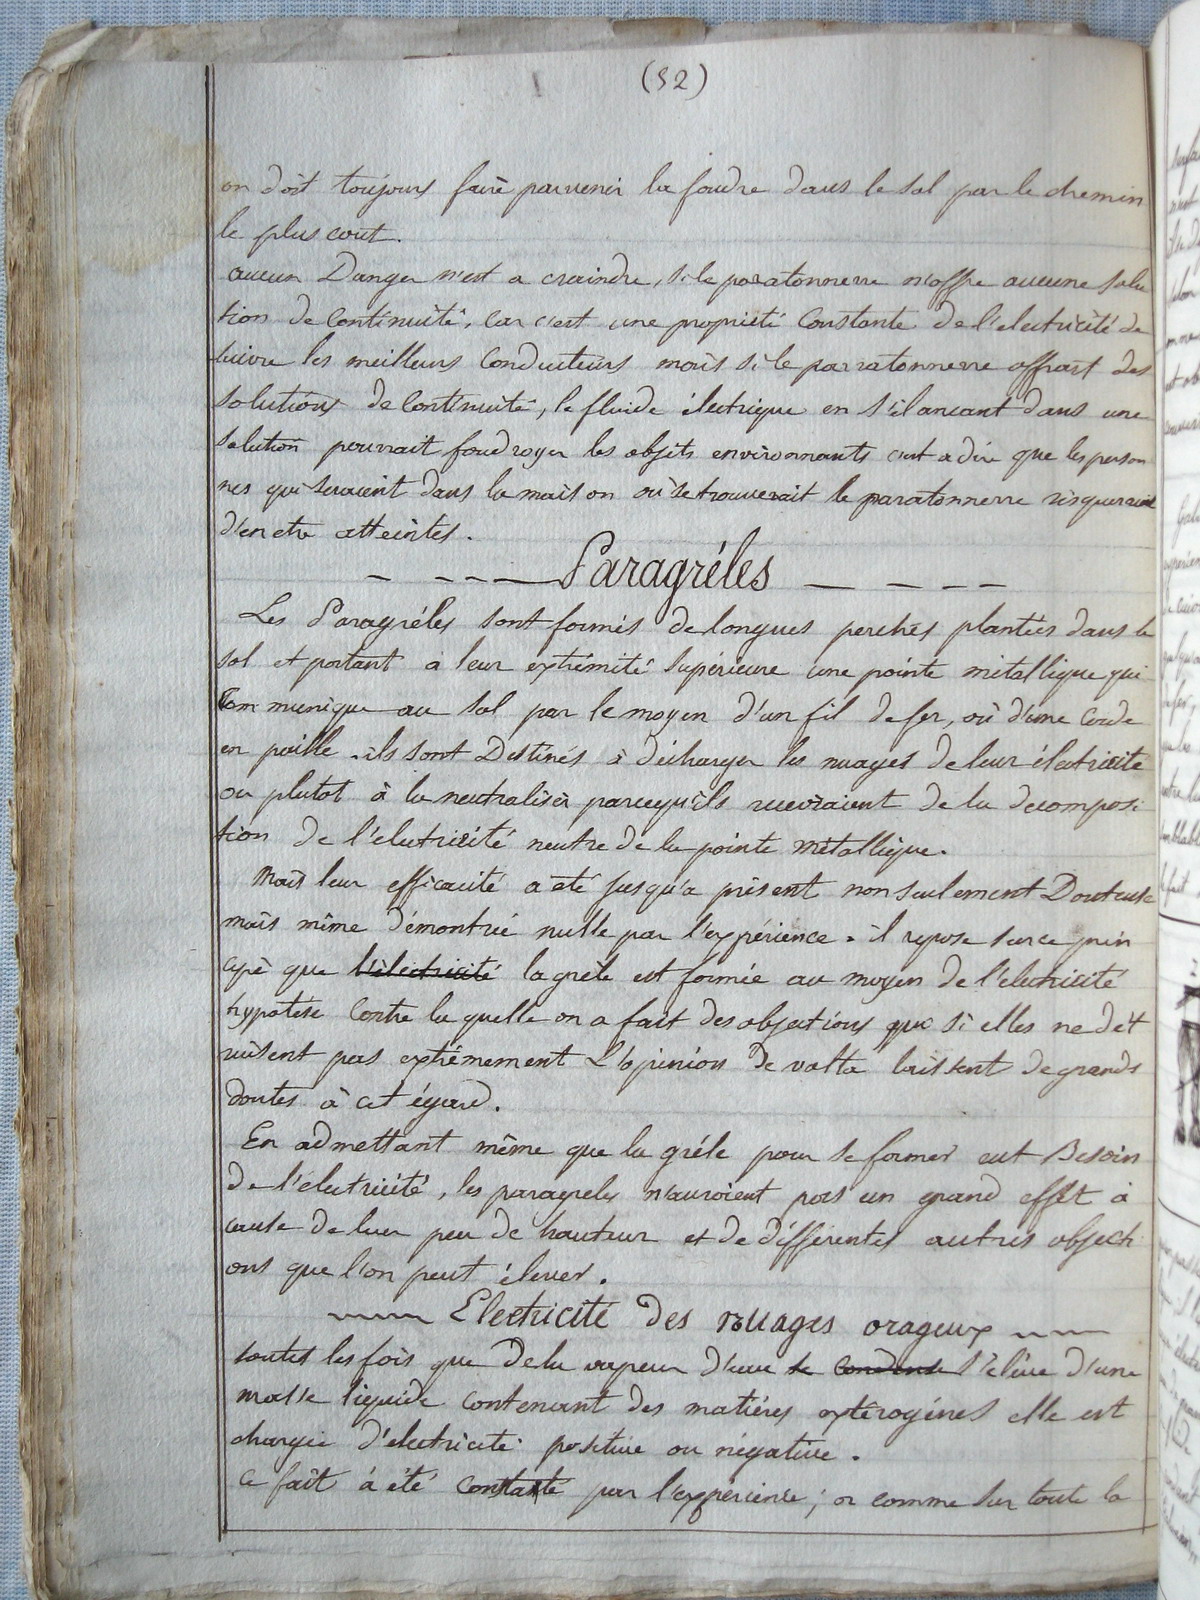 (52)
on doit toujours faire parvenir la foudre dans le sol par le chemin
le plus court.
aucun Danger n'est a craindre, si le paratonnerre n'offre aucune solu
tion de Continuité, Car c'est une propriété Constante de l'electricité de
suivre les meilleurs Conducteurs mais si le parratonnerre offrait des
solutions de Continuité, le fluide électrique en s'élancant dans une
solution pourrait foudroyer les objets environnants c'est a dire que les person
nes qui seraient dans la maison où se trouverait le paratonnerre risqueraient
d'en etre atteintes.
Paragréles
Les Paragréles sont formés de longues perches plantées dans le
sol et portant à leur extrémité supérieure une pointe métallique qui
Communique au sol par le moyen d'un fil de fer, où d'une Corde
en paille. ils sont Destinés à décharger les nuages de leur électricité
ou plutot à la neutraliser parcequ'ils recevraient de la decomposi
tion de l'électricité neutre de la pointe métallique.
Mais leur efficacité a été jusqu'a présent non seulement Douteuse
mais même démontrée nulle par l'expérience. il repose sur ce prin
cipe que l'électricité la grèle est formée au moyen de l'électricité
hypotese Contre la quelle on a fait des objections que si elles ne dét
ruisent pas extrémement L'opinion de volta laissent de grands
doutes à cet égard.
En admettant même que la gréle pour se former eut Besoin
de l'électricité, les paragreles n'auroient pas un grand effet à
cause de leur peu de hauteur et de différentes autres objecti
ons que l'on peut élever.
Electricité des nuages orageux
toutes les fois que de la vapeur d'eau se condense s'élève d'une
masse liquide contenant des matiéres extérogénes elle est
chargée d'electricité positive ou négative.
Ce fait à été constaté par l'expérience; or comme sur toute la